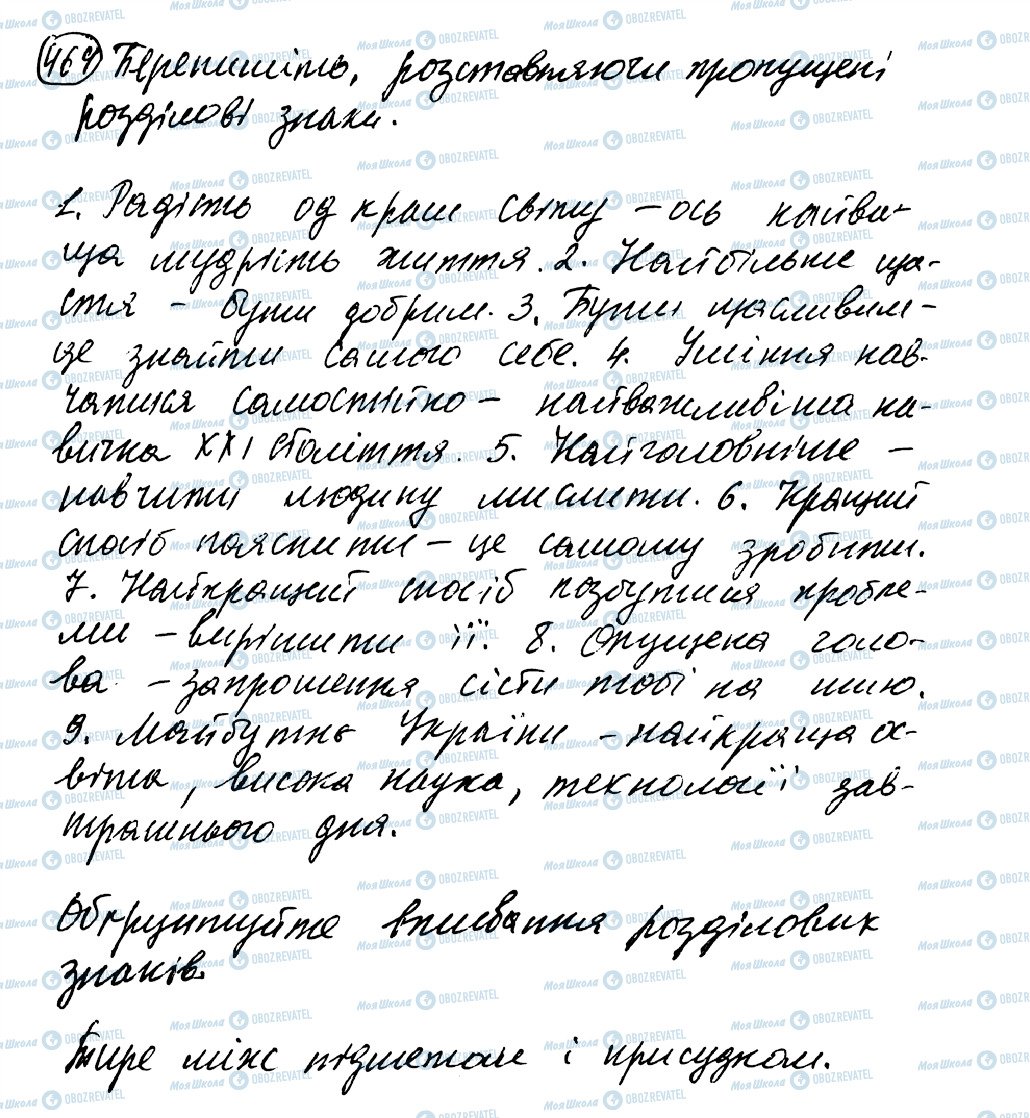 464 Перепишіть, розставляючи пропущені
розділові знаки.
1. Радість од краси світу – ось найви-
ща мудрість життя. 2. Найбільше ща-
стя – бути добрим. 3. Бути щасливим –
це знайти самого себе. 4. Уміння нав-
чатися самостійно – найважливіша на-
вичка XXI століття. 5. Найголовніше –
навчити людину мислити. 6. Кращий
спосіб пояснити – це самому зробити.
7. Найкращий спосіб позбутися пробле-
ми – вирішити її. 8. Опущена голо-
ва – запрошення сісти тобі на шию.
9. Майбутнє України – найкраща ос-
віта, висока наука, технології зав-
трашнього дня.
Обґрунтуйте вживання розділових
знаків.
Тире між підметом і присудком.